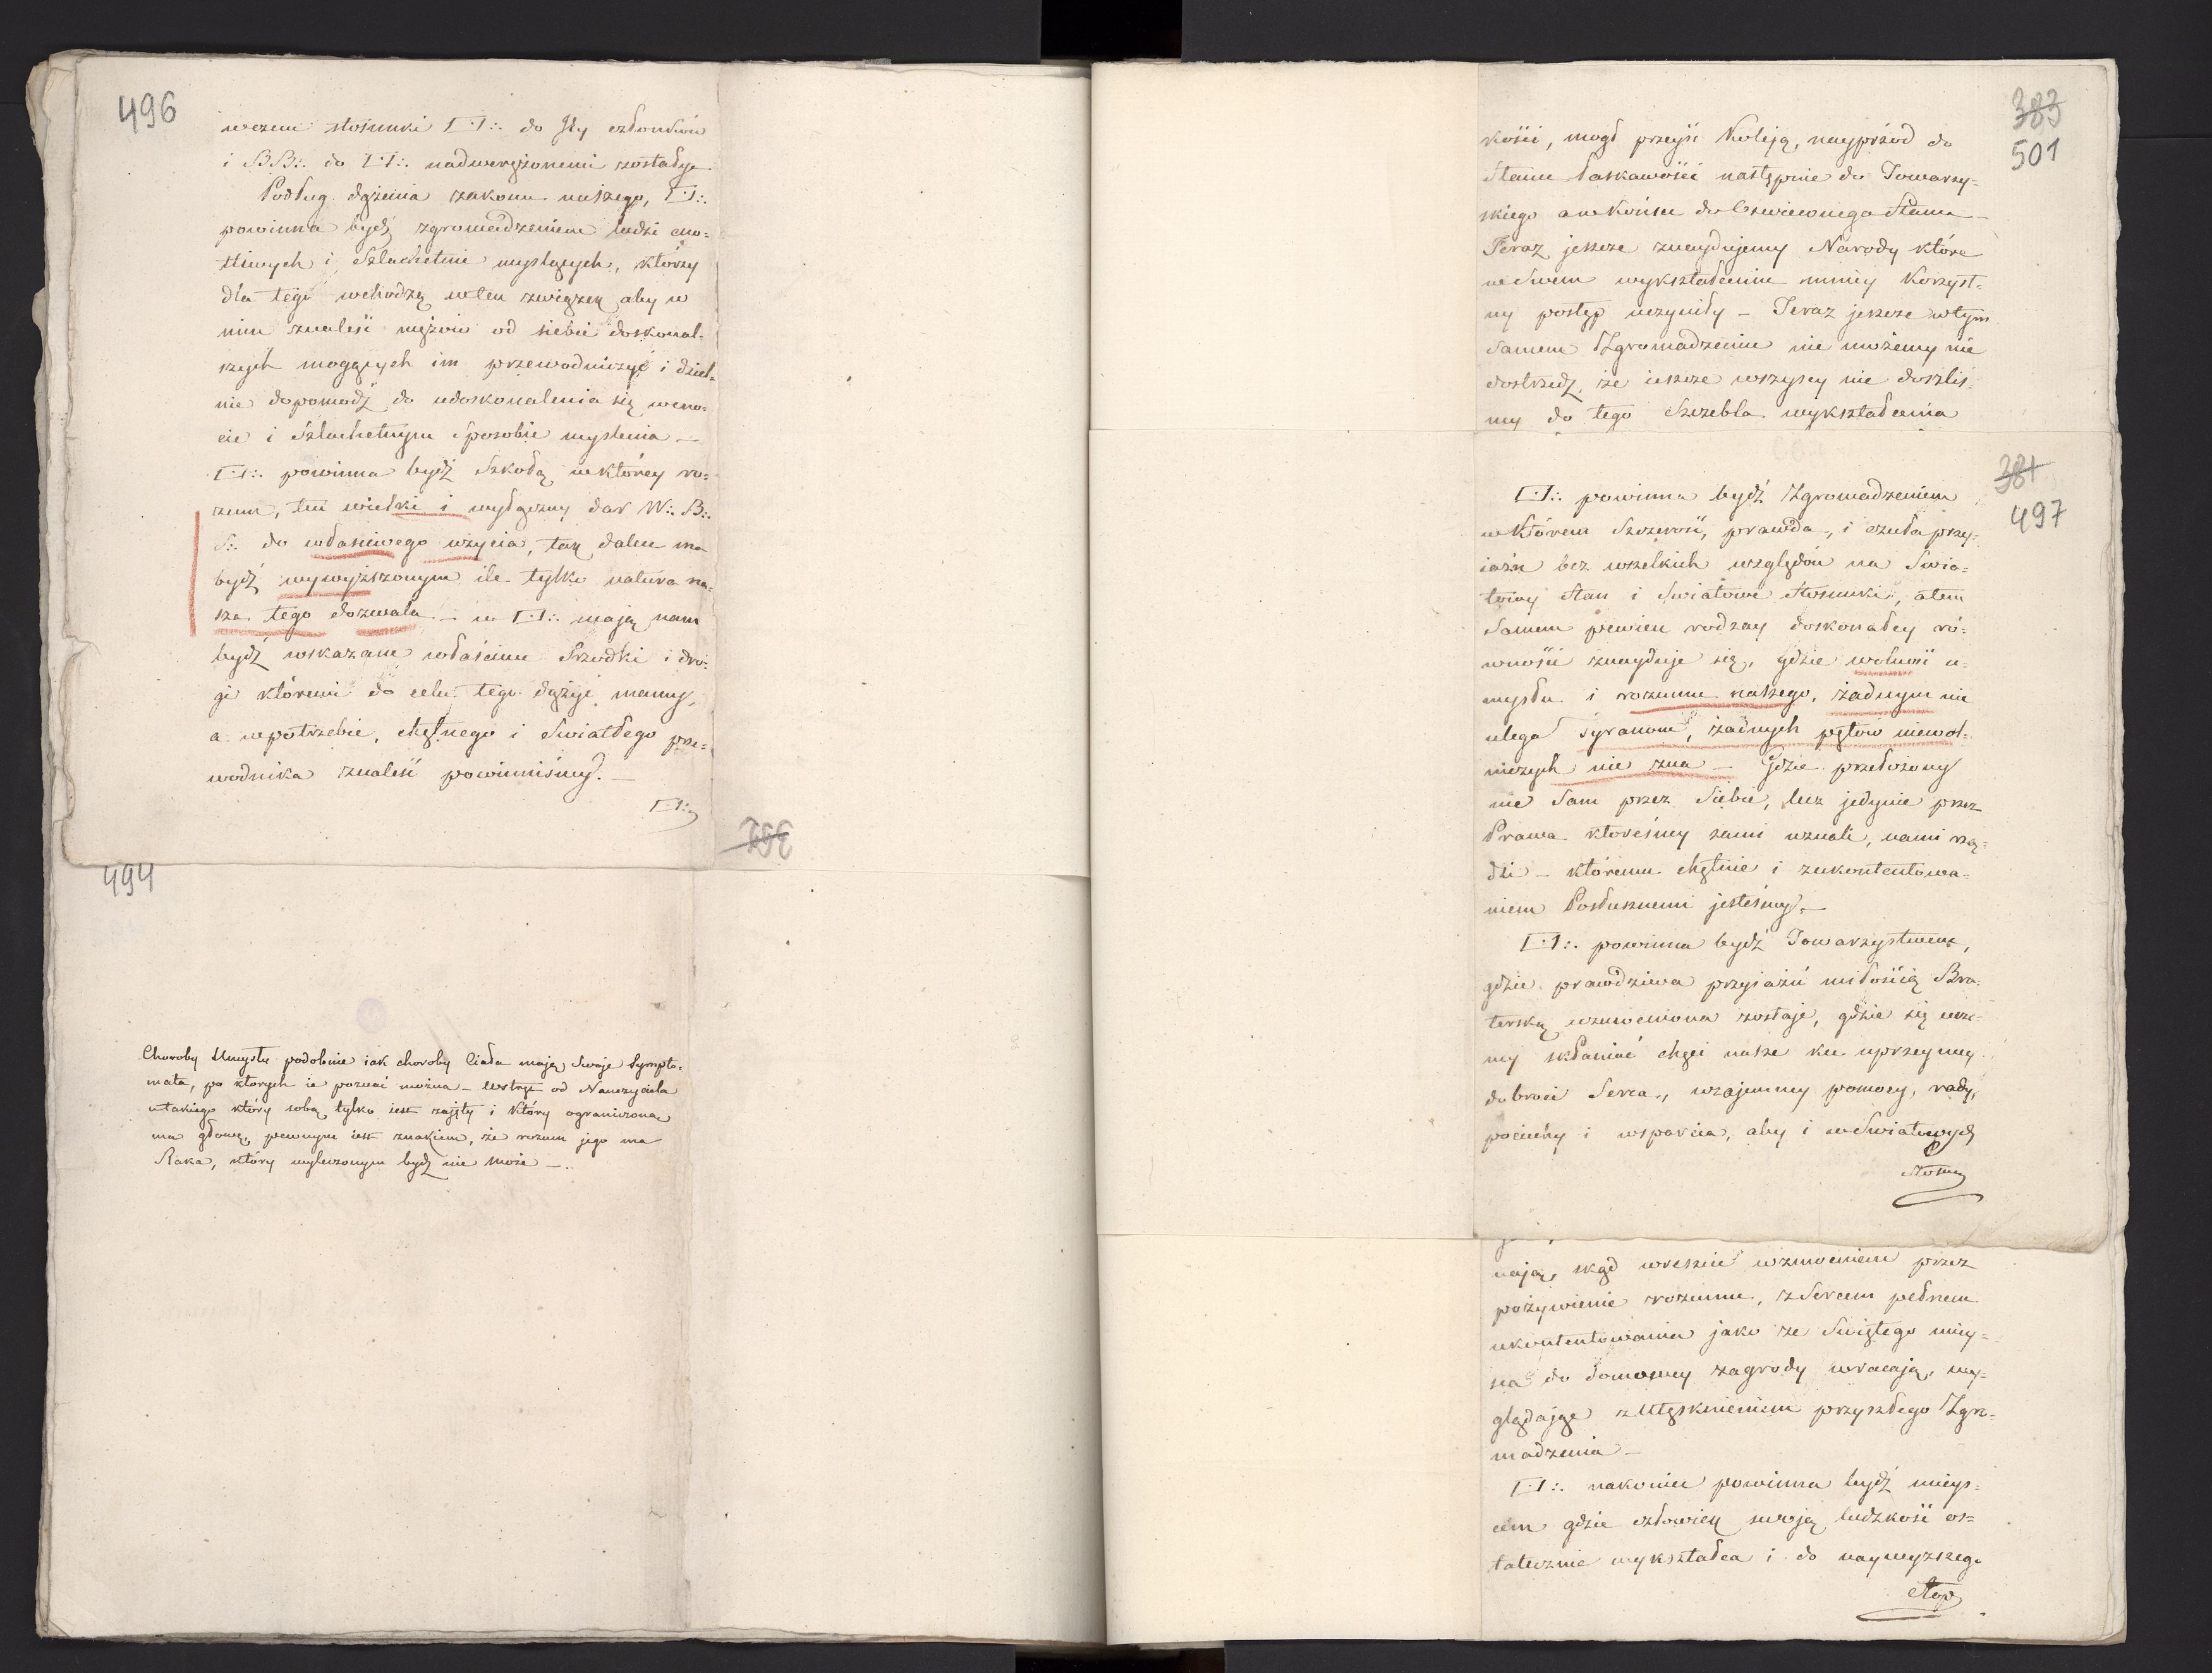 496
wczem stosunki [·]:. do Jey członków
i BB:. do [·]:. nadwerężonemi zostały
Podług dążenia zakonu naszego, [·]:.
powinna bydź zgromadzeniem ludzi cno=
tliwych i Szlachetnie myślących, którzy
dla tego wchodzą wten związek aby w
nim znaleść mężów od siebie doskonal=
szych mogących im przewodniczyć i dziel=
nie dopomodz do udoskonalenia się wcno=
cie i Szlachetnym sposobie myslenia —
[·]:. powinna bydź Szkołą wktórey ro=
zum, ten wielki i wyłączny dar W:. B:.
S:. do właściwego użycia, tak dalece ma
bydź wywyższonym ile tylko natura na=
sza tego dozwala — w [·]:. mają nam
bydź wskazane właściwe Srzodki i dro=
gi któremi do celu tego dążyć mamy,
a wpotrzebie, chętnego i Swiatłego prze=
wodnika znaleść powinniśmy. —
[·]:.
352
494
Choroby Umysłu podobnie iak choroby Ciała mają Swoje Sympto=
mata, po których ie poznać można — Wstręt od Nauczyciela
utakiego który sobą tylko iest zajęty i który ograniczoną
ma głowę, pewnym iest znakiem, że rozum jego ma
Raka, który wyleczonym bydź nie może —.
383
501
kości, mogł przeyść Koleją, nayprzód do
Stanu Łaskawości następnie do Towarzy=
skiego a wKońcu do Oswieconego Stanu —
Teraz jeszcze znaydujemy Narody które
w Swem wykształceniu mniey Korzyst=
ny postęp uczyniły — Teraz jeszcze wtym
Samem Zgromadzeniu nie możemy nie
dostrzedz, że ieszcze wszyscy nie doszliś=
my do tego Szczebla wykształcenia
381
497
[·]:. powinna bydź Zgromadzeniem
w Którem Szczerość, prawda, i czuła przy=
iaźń bez wszelkich względów na Swia=
towy Stan i Swiatowe Stosunki, atem
Samem pewien rodzay doskonałey ró=
wności znayduje się, gdzie wolność u=
mysłu i rozumu naszego, żadnym nie
ulega Tyranom, żadnych pętów niewol=
niczych nie zna — Gdzie przełożony
nie Sam przez Siebie, lecz jedynie przez
Prawa któreśmy sami uznali, nami rzą=
dzi — któremu chętnie i zukontentowa=
niem Posłusznemi jesteśmy. —
[·]:. powinna bydź Towarzystwem,
gdzie prawdziwa przyiaźń miłością Bra=
terską wzmocniona zostaje, gdzie się ucze=
my skłaniać chęci nasze ku uprzeymey
dobroci Serca, wzajemney pomocy, rady,
pociechy i wsparcia, aby i w Swiatowych
Stosun
nają, skąd wreszcie wzmocnieni przez
pożywienie rozumu, z Sercem pełnem
ukontentowania jako ze Swiętego miey=
sca do domowey zagrody wracają, wy=
glądając z Utęsknieniem przyszłego Zgro=
madzenia —
[·]:. nakoniec powinna bydź mieys=
cem gdzie człowiek swoją ludzkość os=
tatecznie wykształca i do naywyzszego
Stop